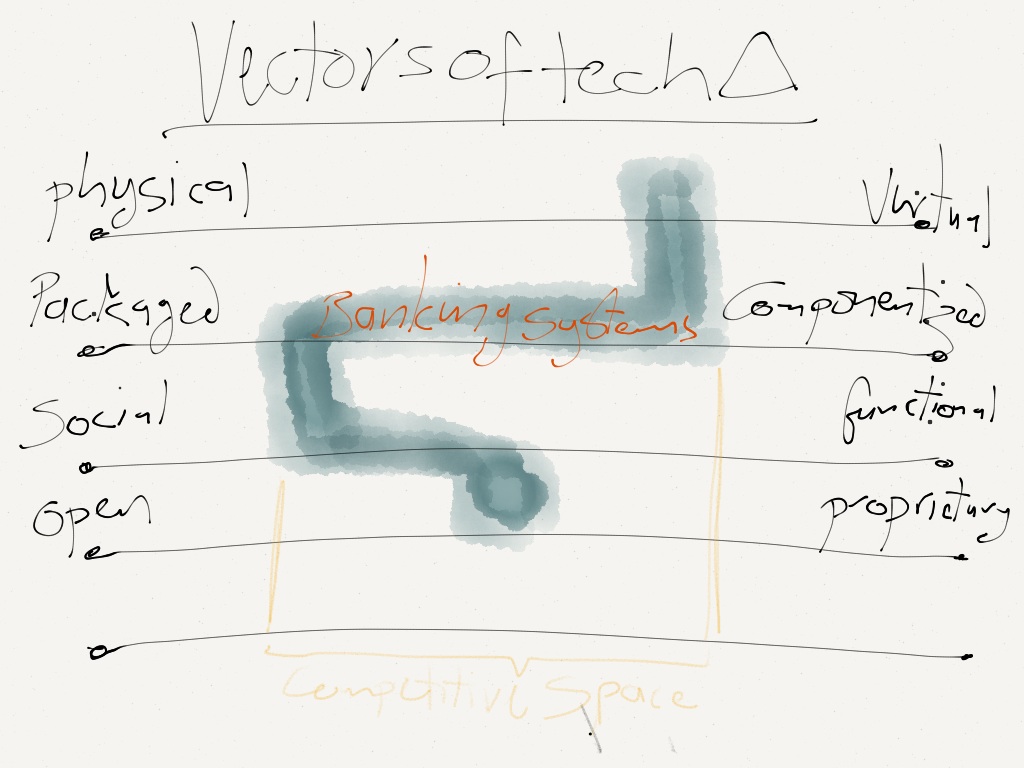 Vectors of tech Δ
physical Virtual
Packaged Componentized
Banking systems
Social functional
open proprietury
Competitive Space